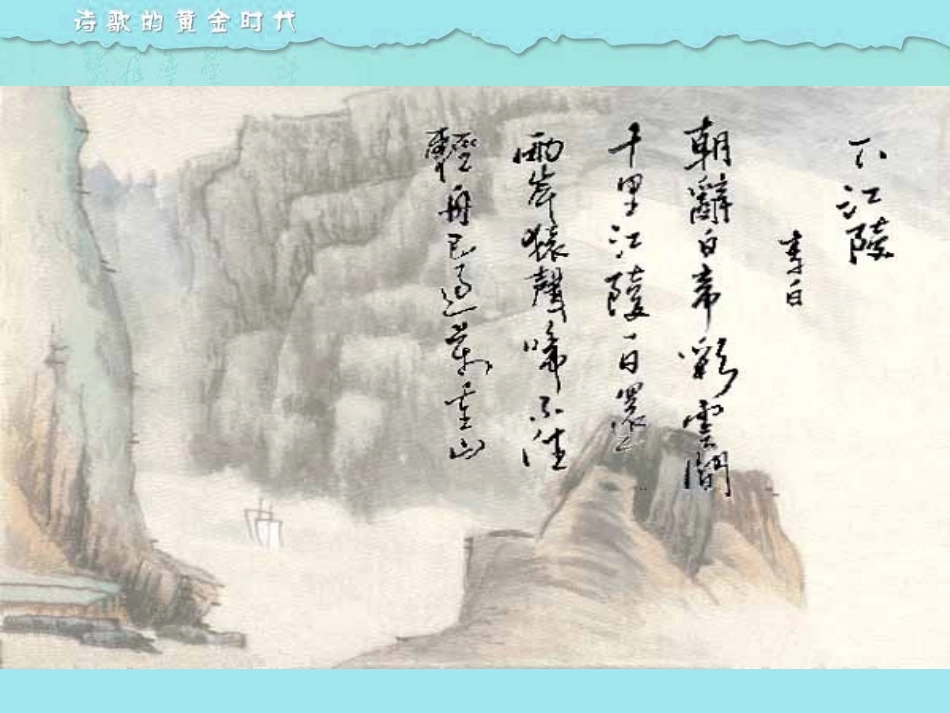 诗歌的黄金时代
下江陵
李白
朝辭白帝彩雲間
千里江陵一日還
兩岸猿聲啼不住
輕舟已過萬重山